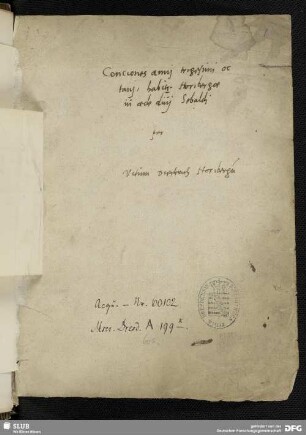 Conciones anni trigesimi oc
taui, habitę Noribergæ
in æde diui Sebaldi
per
Vitum Dietrich Noribergen
Acqu. - Nr. 10012
Mscr. Dresd. A 199
SLUB
Wir führen Wissen.
gefördert von der
Deutschen Forschungsgemeinschaft
DFG